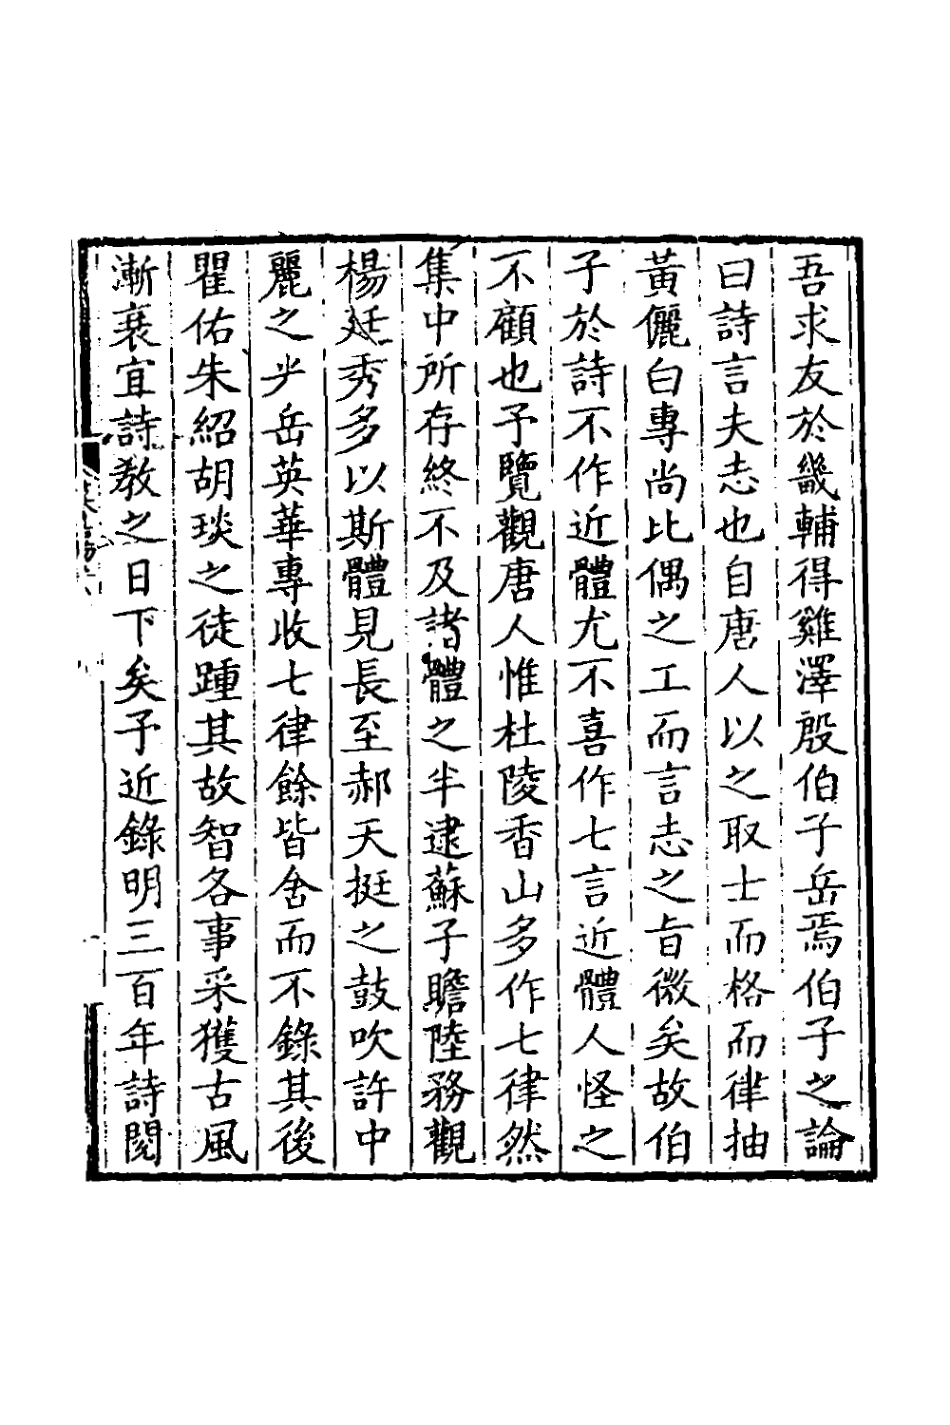 吾求友於畿輔得雞澤殷伯子岳焉伯子之論
曰詩言夫志也自唐人以之取士而格而律抽
黃儷白專尚比偶之工而言志之旨微矣故伯
子於詩不作近體尤不喜作七言近體人怪之
不顧也予覽觀唐人惟杜陵香山多作七律然
集中所存終不及諸體之半逮蘇子瞻陸務觀
楊廷秀多以斯體見長至郝天挺之鼓吹許中
麗之光岳英華專收七律餘皆舍而不錄其後
瞿佑朱紹胡琰之徒踵其故智各事采獲古風
漸衰宜詩教之日下矣予近錄明三百年詩閱